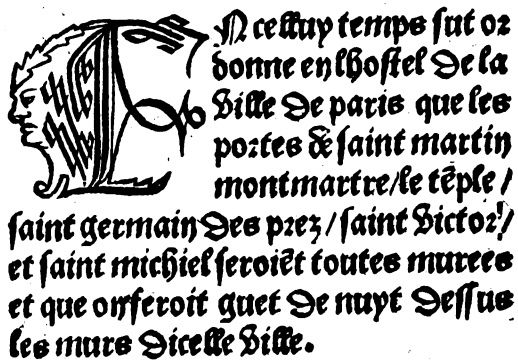 EN celluy temps fut or
donne en lhostel de la
ville de paris que les
portes de saint martin
montmartre/le tẽple/
saint germain des prez/saint victor/
et saint michiel seroiẽt toutes murees
et que on feroit guet de nuyt dessus
les murs dicelle ville.